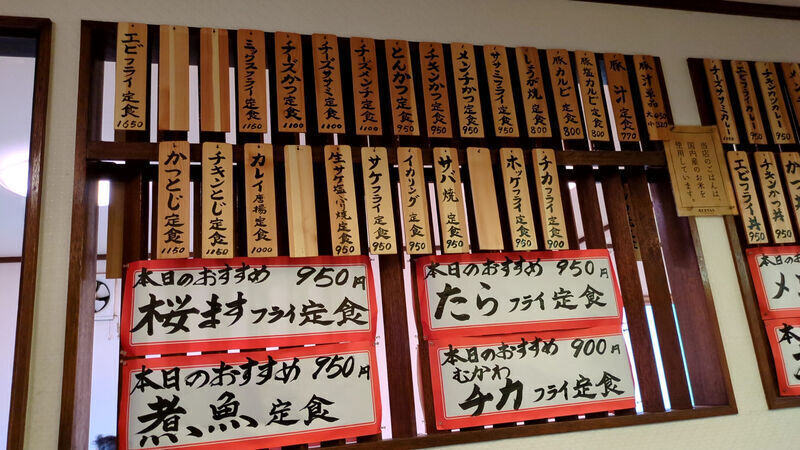 エビフライ定食 1650
ミックスフライ定食 1150
チーズかつ定食 1100
チーズササミ定食 1100
チーズメンチ定食 1100
とんかつ定食 950
チキンかつ定食 950
メンチかつ定食 950
ササミフライ定食 950
しょうが焼定食 800
豚カルビ定食 800
豚塩カルビ定食 800
豚汁定食 770
豚汁単品 大450 小320
かつとじ定食 1150
チキンとじ定食 1150
カレイ唐揚定食 1000
生サケ塩ふり焼定食 950
サケフライ定食 950
イカリング定食 950
サバ焼定食 950
ホッケフライ定食 900
チカフライ定食 900
本日のおすすめ 950円
桜ますフライ定食
本日のおすすめ 950円
たらフライ定食
本日のおすすめ 950円
煮魚定食
本日のおすすめ 900円
むかわ
チカフライ定食
当店のごはんは
国内産のお米を
使用しています。
チーズササミカレー
エビフライカレー 950
チキンカツカレー 950
エビフライ丼 950
チキンかつ丼 950